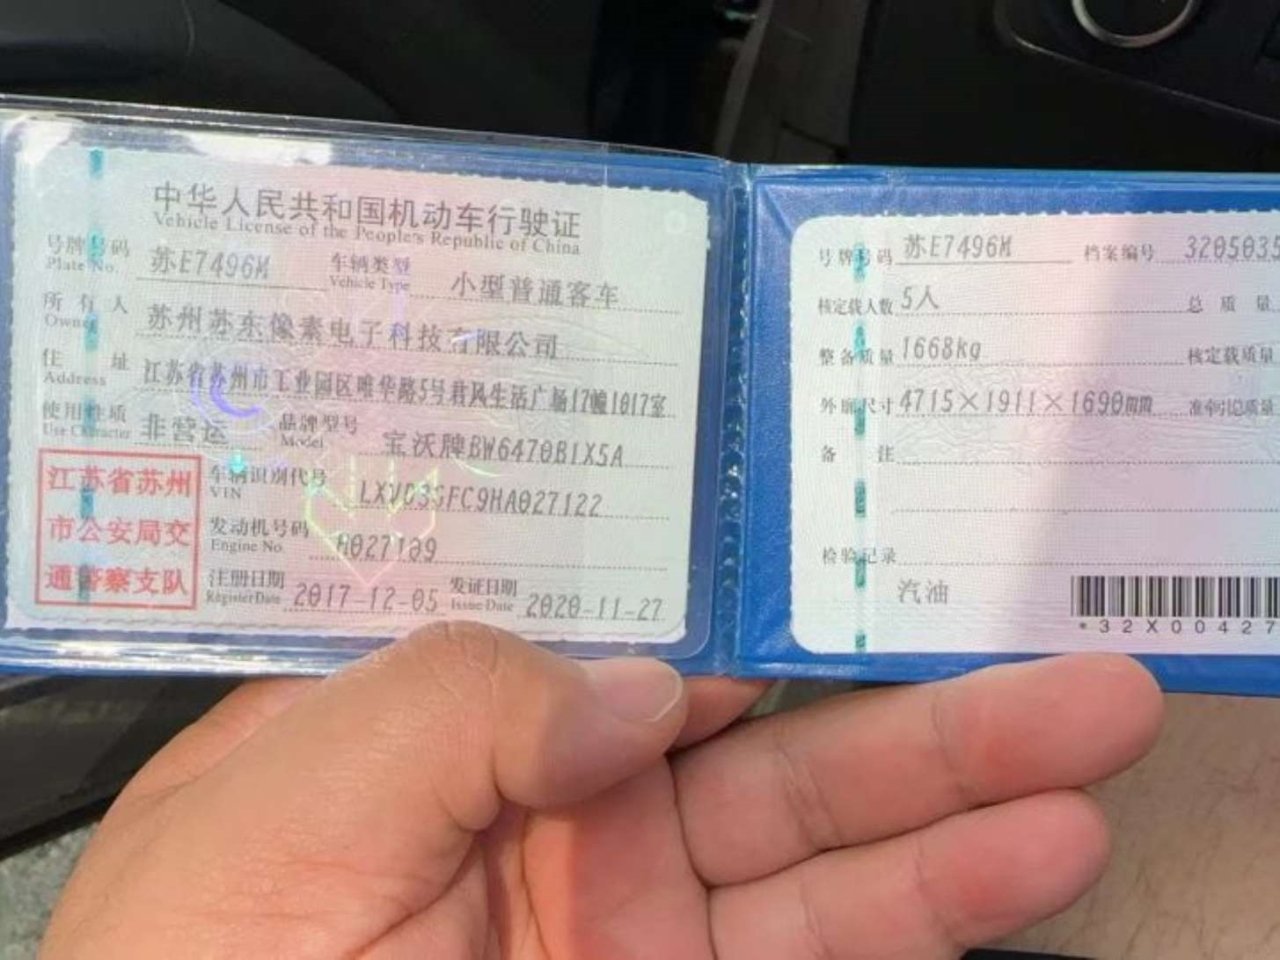 中华人民共和国机动车行驶证
Vehicle License of the People's Republic of China
号牌号码 苏E7496M 车辆类型 小型普通客车
Plate No. Vehicle Type
所有人 苏州苏东像素电子科技有限公司
Owner
住址 江苏省苏州市工业园区唯华路5号君风生活广场17幢1017室
Address
使用性质 非营运 品牌型号 宝沃牌BW6470B1X5A
Use Character Model
江苏省苏州
市公安局交
通警察支队
车辆识别代号 LXVD3GFC9HA027122
VIN
发动机号码 H027109
Engine No.
注册日期 2017-12-05 发证日期 2020-11-27
Register Date Issue Date
号牌号码 苏E7496M 档案编号 3205035
核定载人数 5人 总质量
整备质量 1668kg 核定载质量
外廓尺寸 4715×1911×1690mm 准牵引总质量
备注
检验记录
汽油
*32X00427